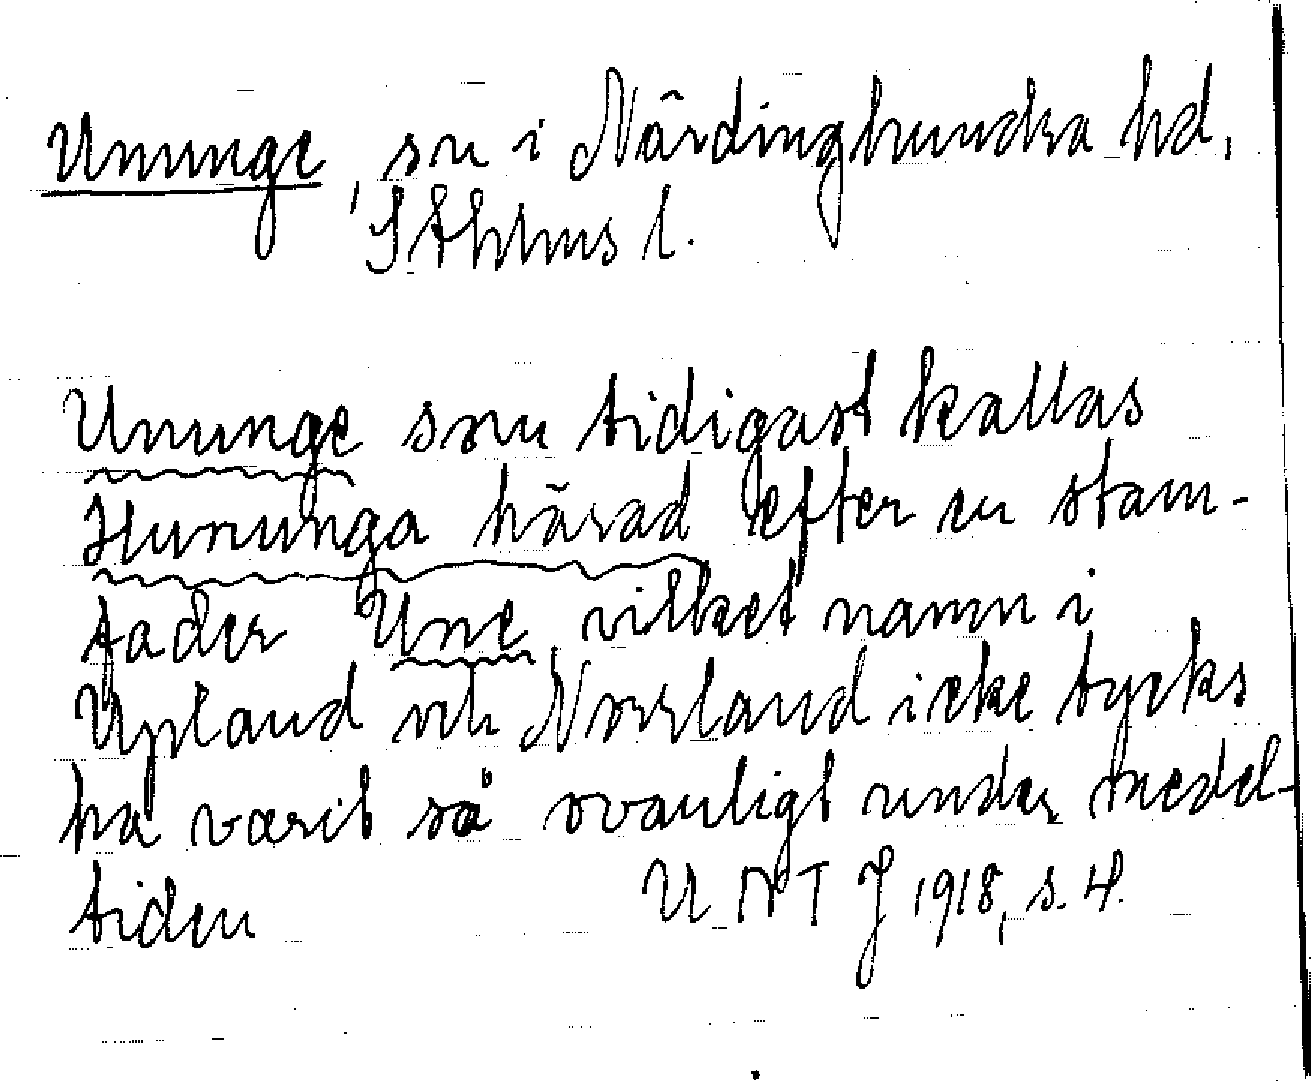 Ununge, sn i Närdinghundra hd,
Sthlms l.
Ununge snn tidigast kallas
Hununga härad efter en stam-
fader Une, vilket namn i
Uppland och Norrland icke tycks
ha varit så ovanligt under medel-
tiden U N T J 1918, s. 4.